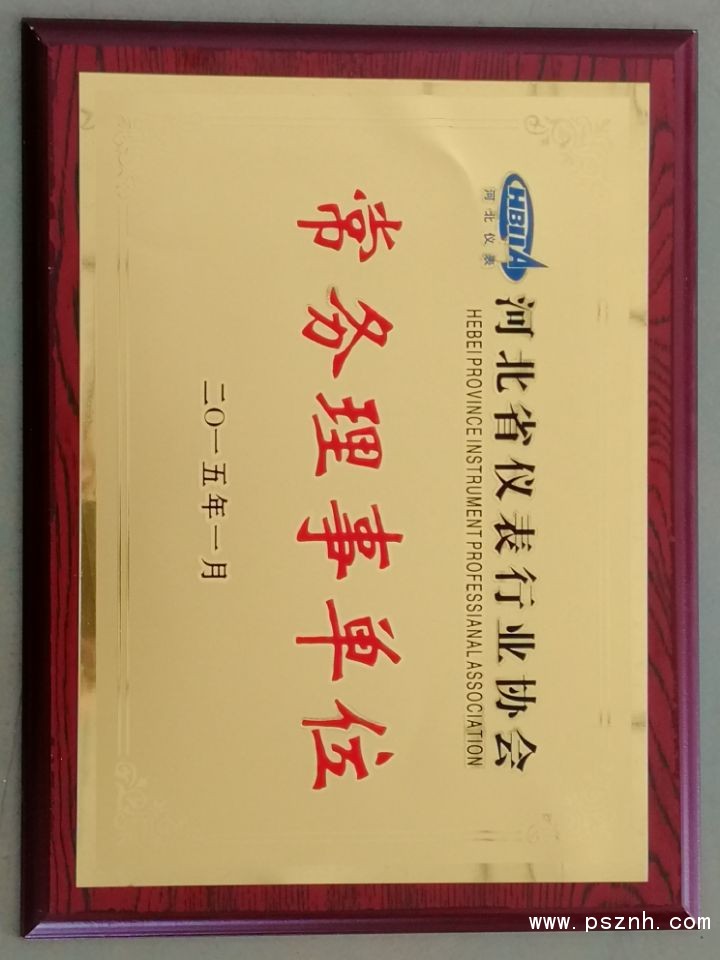 HBITA
河北仪表
河北省仪表行业协会
HEBEI PROVINCE INSTRUMENT PROFESSIANAL ASSOCIATION
常务理事单位
二〇一五年一月
www.psznh.com